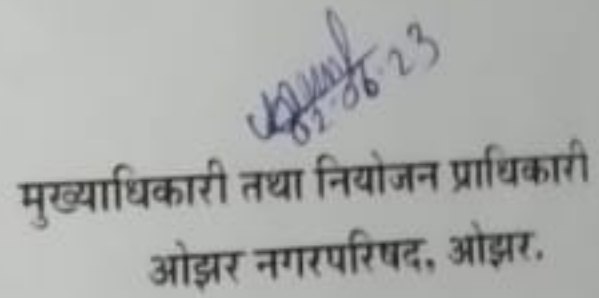 02.06.23
मुख्याधिकारी तथा नियोजन प्राधिकारी
ओझर नगरपरिषद, ओझर.